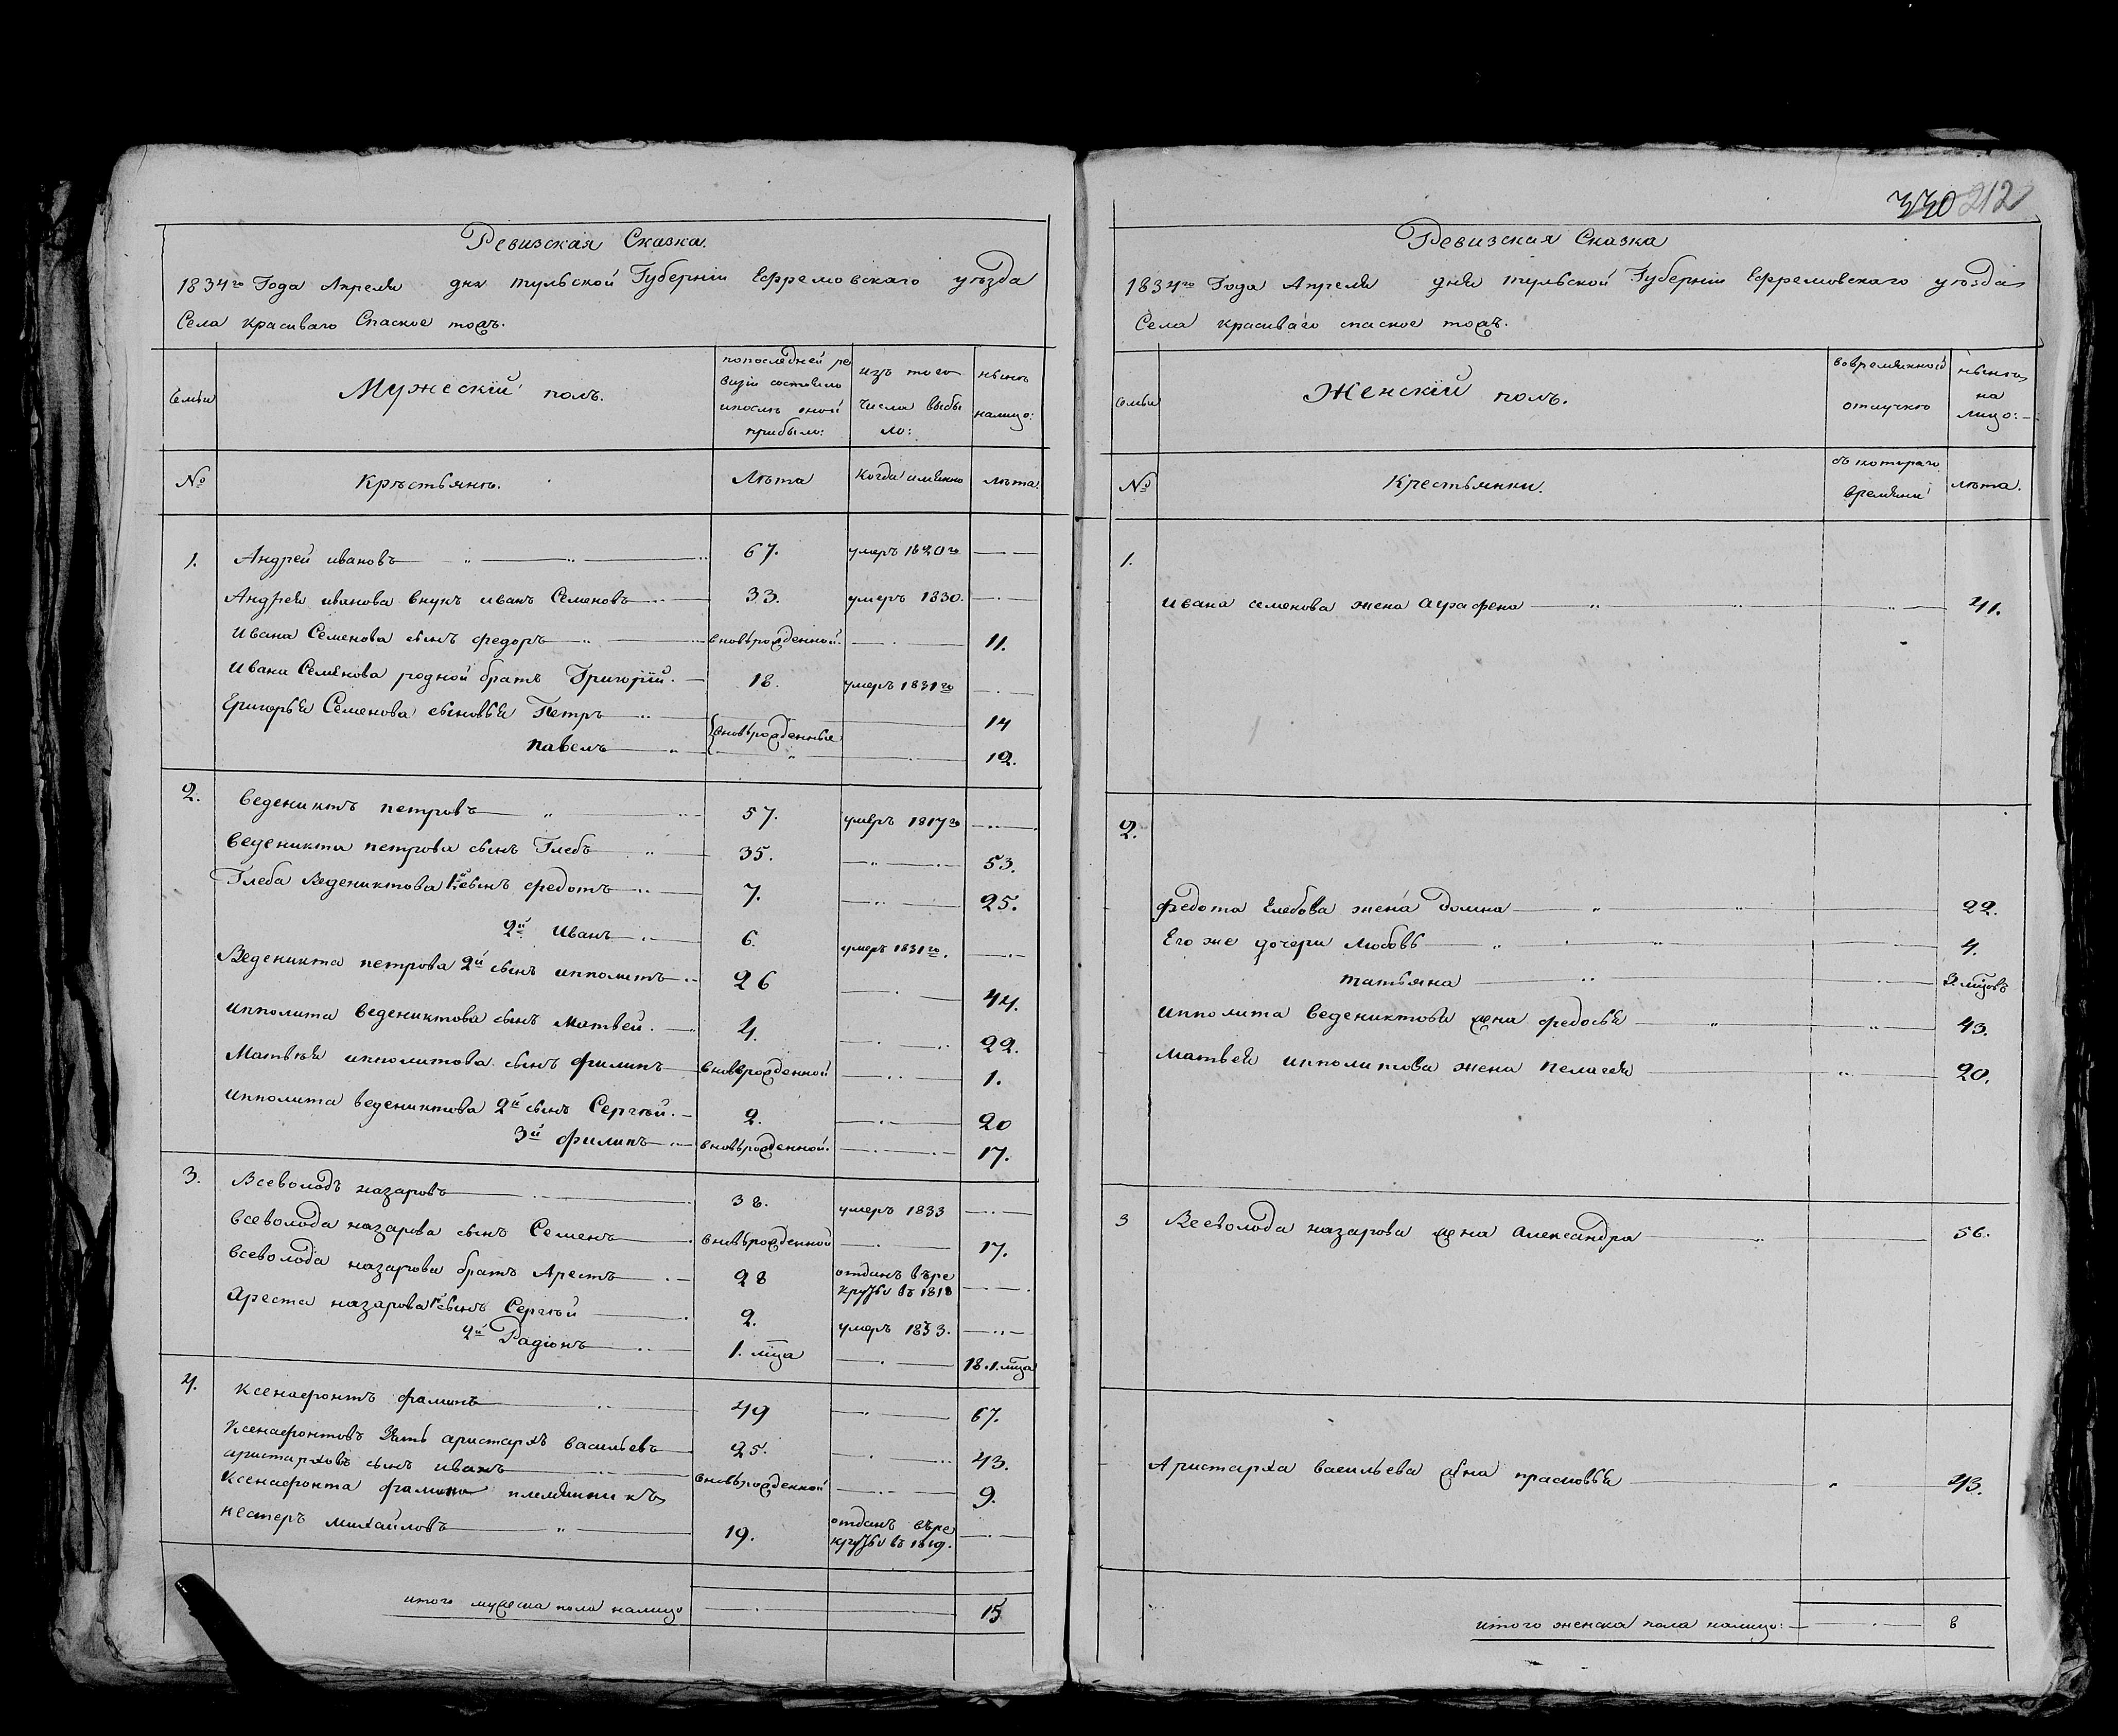 Ревизская Сказка.
1834го Года Апреля дня тульской Губернiи Ефремовскаго уѣзда
Села красиваго Спаское тожъ.
Семьи
Мужескiй полъ.
попоследней ре
визiи состояло
ипослѣ оной
прибыло:
изъ того
числа выбы
ло:
нынѣ
налицо:
№
Крѣстьянѣ.
Лѣта
когда имянно
лѣта.
1. Андрей ивановъ 67. умеръ 1820го
Андрея иванова внукъ иванъ Семеновъ 33. умеръ 1830.
Ивана Семенова сынъ федоръ вновьрожденной. 11.
Ивана Семѣнова родной братъ Григорiй. 18. умеръ 1831го
Григорья Семенова сыновья Петръ вновьрожденныя 14
павелъ 12.
2. Веденитъ петровъ 57. умеръ 1817го
Веденикта петрова сынъ Глебъ 35. 53.
Глеба Ведениктова 1й сынъ федотъ 7. 25.
2й Иванъ 6. умеръ 1831го.
Веденикта петрова 2й сынъ ипполитъ 26 44.
Ипполита Ведениктова сынъ Матвей. 4. 22.
Матвѣя ипполитова сынъ филипъ вновьрожденной 1.
Ипполита ведениктова 2й сынъ Сергѣй. 2. 20
3й филипъ вновьрожденной. 17.
3. Всеволодъ назаровъ 38. умеръ 1833
Всеволода назарова сынъ Семенъ вновьрожденной 17.
Всеволода назарова братъ Арестъ 28 отданъ въре
круты въ 1818
Ареста назарова 1й сынъ Сергѣй 2. умеръ 1833.
2й Радiонъ 1. мца 18.1.мца
4. Ксенафонтъ фаминъ 49 67.
Ксенафонтовъ Зять аристархъ васильевъ 25. 43.
аристарховъ сынъ иванъ вновьрожденной 9.
Ксенафонта фамина племянникъ
нестеръ михайловъ 19. отданъ въре
круты въ 1819.
итого мужеска пола налицо 15
330 212
Ревизская Сказка
1834го Года Апреля дня тульской Губернiи Ефремовскаго уѣзда
Села красиваго спаское тожъ.
семьи
Женскiй полъ.
вовремянной
отлучкѣ
нынѣ
на
лицо:
№
Крестьянки.
съ котораго
времяни
лѣта.
1.
Ивана семенова жена аграфена 41.
2.
Федота Глебова жена домна 22.
Его же дочери Любовь 4.
татьяна 9 мцовъ
Ипполита ведениктова жена федосья 43.
Матвея ипполитова жена пелагея 20.
3 Всеволода назарова жена Александра 56.
Аристарха васильева жена прасковья 43.
итого женска пола налицо: 8